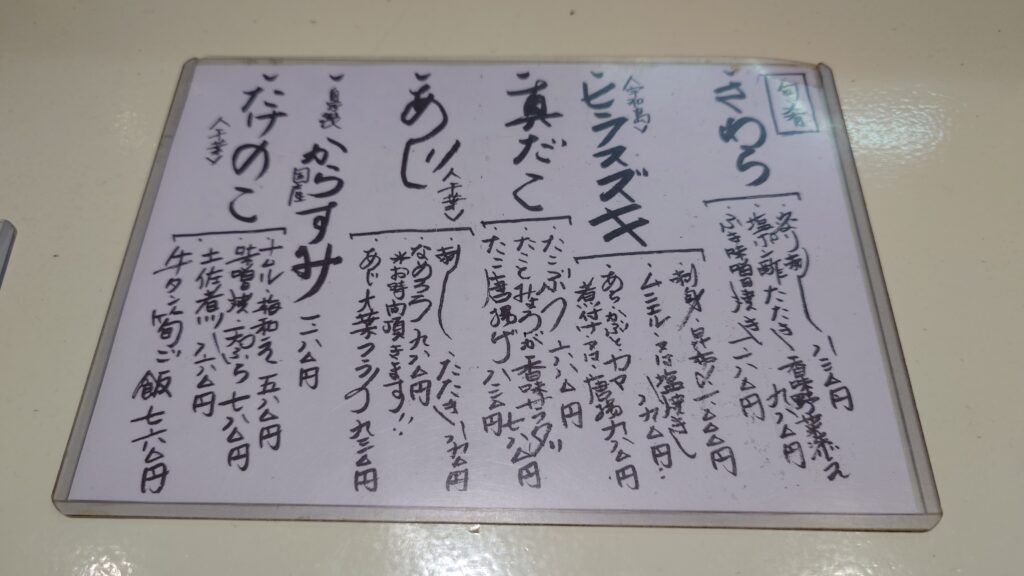 旬肴
・さわら
炙り刺し 八三〇円
塩ポン酢たたき 香味野菜添え 九八〇円
ふき味噌焼き 一一八〇円
・ヒラスズキ
刺身
ムニエル又は塩焼き 八九〇円
あらかぶとカマ
煮付け又は唐揚 九八〇円
・真だこ
たこぶつ 六八〇円
たことみょうが香味サラダ 七八〇円
たこ唐揚げ 八三〇円
・あじ
刺し たたき 八九〇円
なめろう 九八〇円
＊お時間頂きます!!
あじ大葉フライ 九三〇円
・自家製
国産
からすみ 一二八〇円
・たけのこ
ナムル 梅和え 五八〇円
味噌焼 天ぷら 七八〇円
土佐煮 六八〇円
牛タン筍ご飯 七六〇円